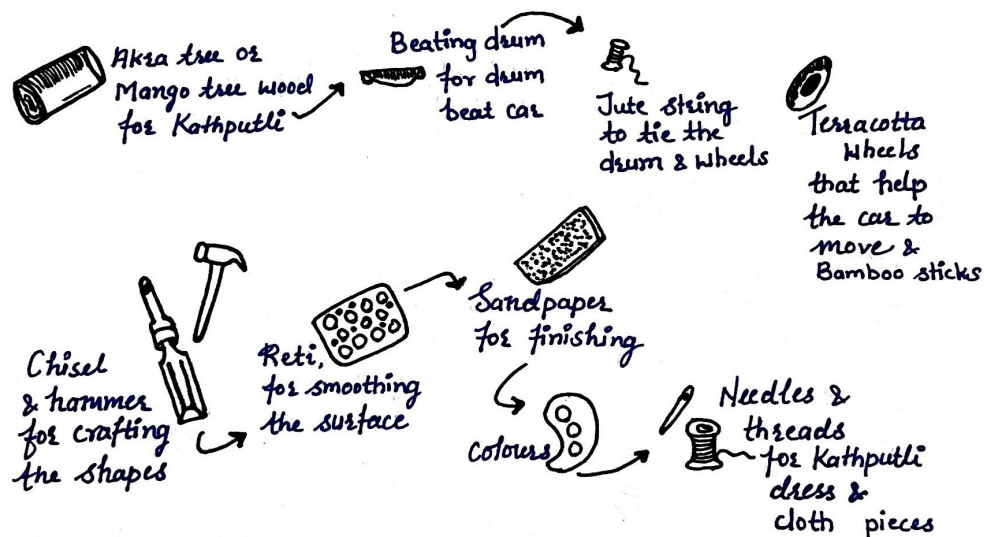 Akra tree or
Mango tree wood
for Kathputli
Beating drum
for drum
beat car
Jute string
to tie the
drum & wheels
Terracotta
wheels
that help
the car to
move &
Bamboo sticks
Chisel
& hammer
for crafting
the shapes
Reti,
for smoothing
the surface
Sandpaper
for finishing
Colours
Needles &
threads
for Kathputli
dress &
cloth pieces